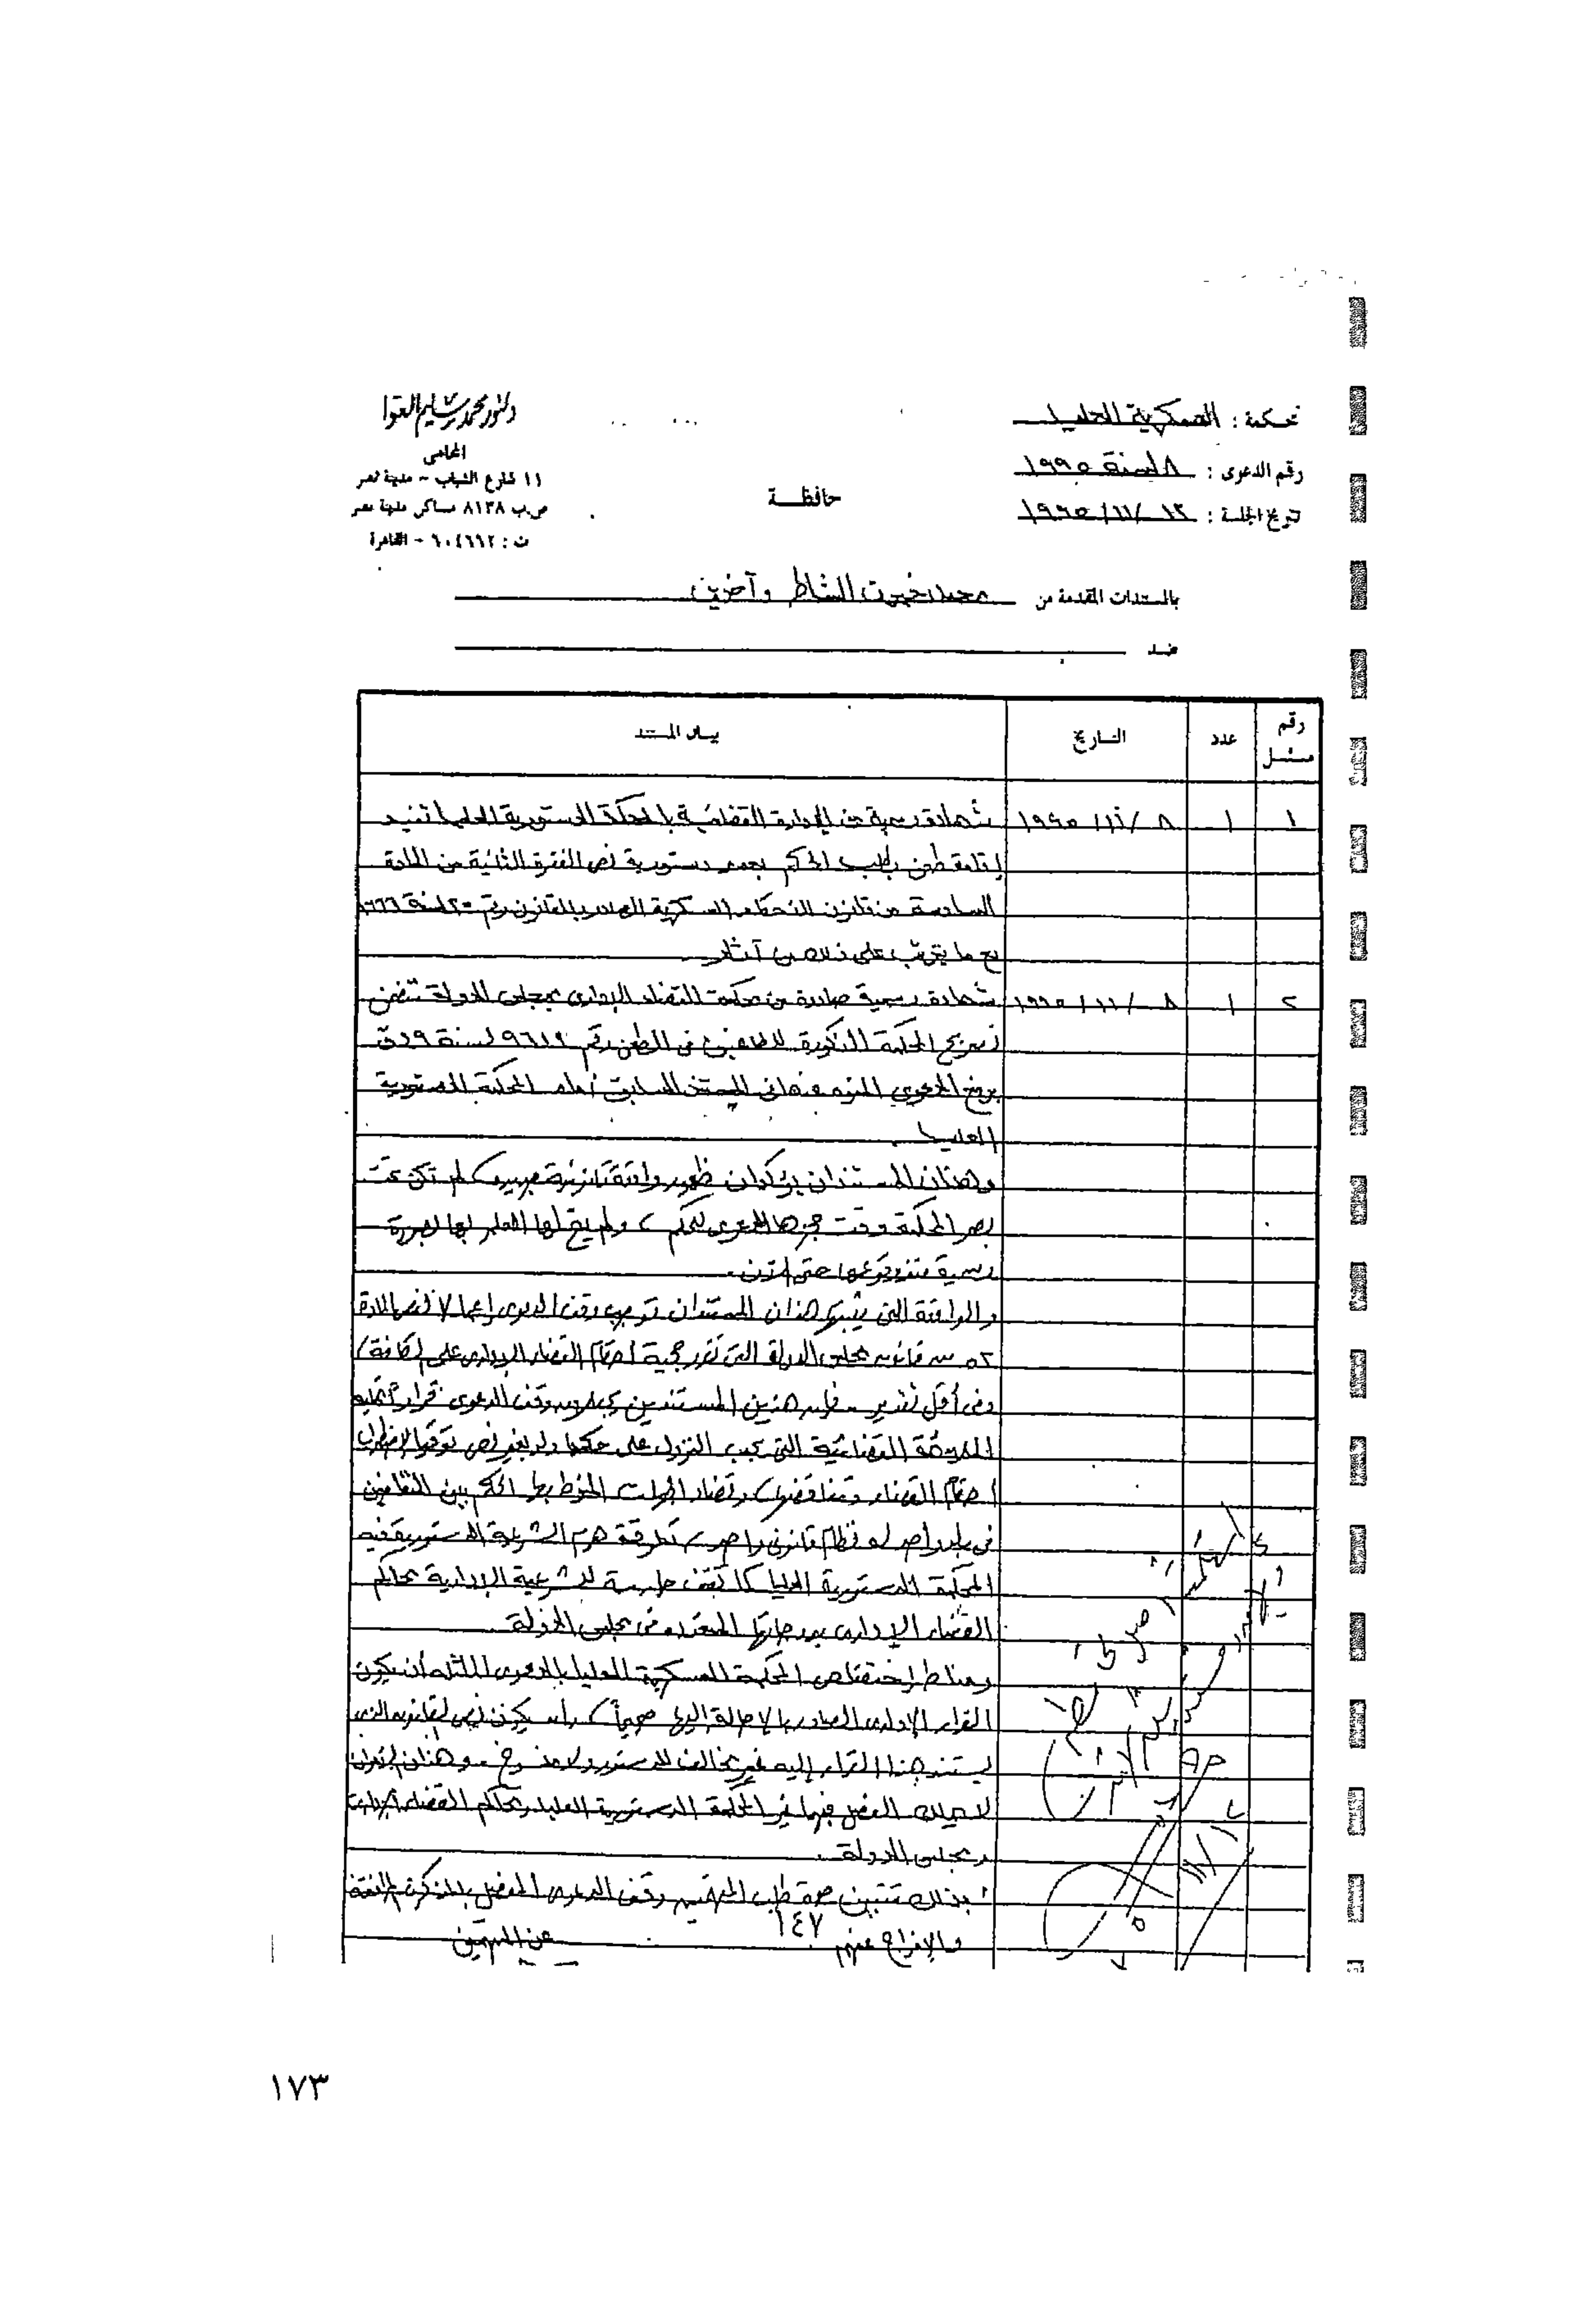 دكتور محمد سليم العوا
المحامى
١١ شارع الشباب - مدينة نصر
ص.ب ٨١٣٨ مساكن مدينة نصر
ت : ٦٠٤٦١٢ - القاهرة
محكمة : العسكرية العليا
رقم الدعوى : ٨ لسنة ١٩٩٥
تاريخ الجلسة : ١٢ /١١/ ١٩٩٥
حافظة
بالمستندات المقدمة من محمد خيرت الشاطر وآخرين
ضد
رقم مسلسل عدد التاريخ بيان المستند
١ ١ ٨ /١١/ ١٩٩٥ شهادة رسمية من الإدارة القضائية بالمحكمة الدستورية العليا تفيد
إقامة طعن بطلب الحكم بعدم دستورية نص الفقرة الثانية من المادة
السادسة من قانون الأحكام العسكرية الصادر بالقانون رقم ٢٥ لسنة ١٩٦٦
مع ما يترتب على ذلك من آثار
٢ ١ ٨ /١١/ ١٩٩٥ شهادة رسمية صادرة من محكمة القضاء الإدارى بمجلس الدولة تتضمن
تصريح المحكمة المذكورة للطاعنين فى الطعن رقم لسنة ٤٩ ق
برفع الدعوى المنوه عنها فى المستند السابق أمام المحكمة الدستورية
العليا .
وهذان المستندان يؤكدان ظهور واقعة قانونية جديدة لم تكن تحت
بصر المحكمة وقت حجزها الدعوى للحكم ، ولم يتح لها العلم بها بصورة
رسمية حتى الآن .
والواقعة التى يثبتها هذان المستندان توجب وقف الدعوى إعمالا لنص المادة
٥٢ من قانون مجلس الدولة التى تقرر حجية أحكام القضاء الإدارى على الكافة /
وفى أقل تقدير - فإن هذين المستندين يجعلان وقف الدعوى قراراً تمليه
الملاءمة القضائية التى يجب النزول على حكمها ولو بغير نص توقيا لاضطراب
أحكام القضاء وتناقضها ، وتضاد الجهات المنوط بها الحكم بين المتقاضين
فى بلد واحد له نظام قانونى واحد ، تقف على هرم الشرعية الدستورية فيه
المحكمة الدستورية العليا كما تقف حارسة للشرعية الإدارية محاكم
القضاء الإدارى بدرجاتها المتعددة فى مجلس الدولة .
ومناط إختصاص المحكمة العسكرية العليا بالدعوى الماثلة أن يكون
القرار الإدارى الصادر بالإحالة إليها صحيحاً ، وأن يكون نص القانون الذى
يستند هذا القرار إليه غير مخالف للدستور وهذان أمران
لا يملك الفصل فيهما غير المحكمة الدستورية العليا ومحاكم القضاء الإدارى
بمجلس الدولة .
بذلك تتبين صحة طلب المتهمين وقف الدعوى المفصل بالمذكرة المرفقة
والإفراج عنهم
١٤٧
عن المتهمين
١٧٣